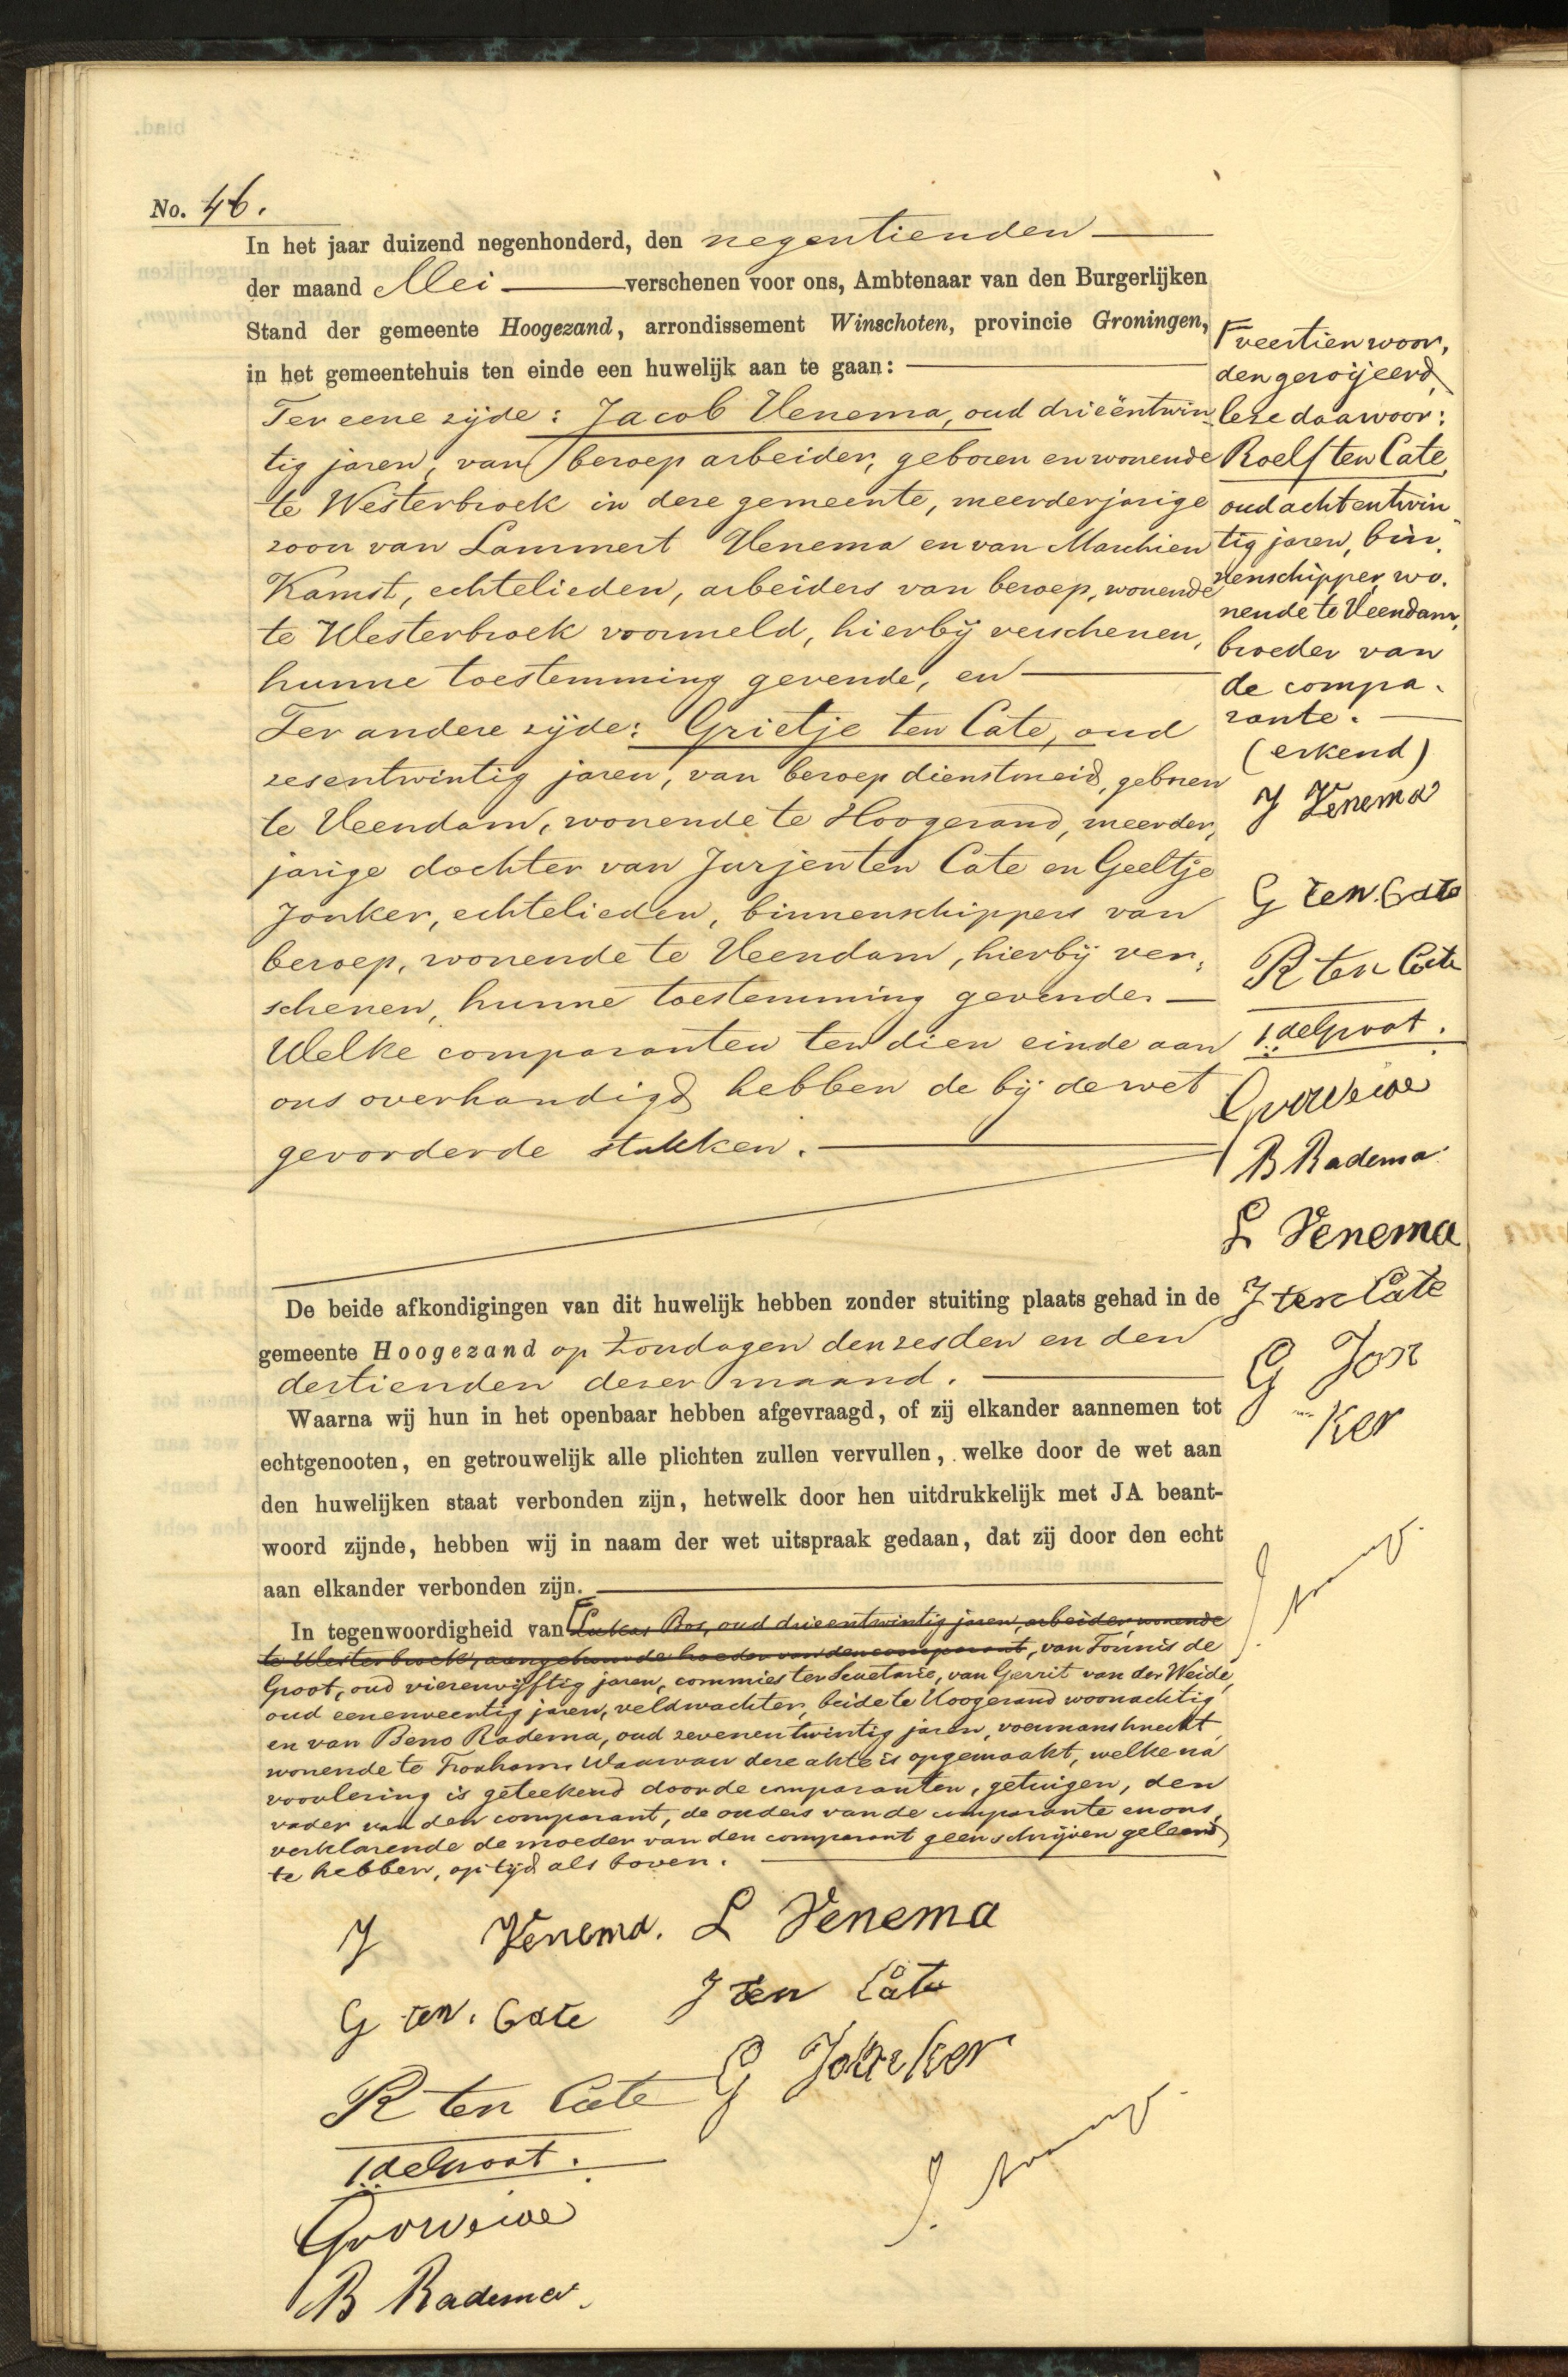 No. 46.
In het jaar duizend negenhonderd, den negentienden
der maand Mei verschenen voor ons, Ambtenaar van den Burgerlijken
Stand der gemeente Hoogezand, arrondissement Winschoten, provincie Groningen,
in het gemeentehuis ten einde een huwelijk aan te gaan:
Ter eene zijde: Jacob Venema, oud drieëntwin
tig jaren, van beroep arbeider, geboren en wonende
te Westerbroek in deze gemeente, meerderjarige
zoon van Lammert Venema en van Marchien
Kamst, echtelieden, arbeiders van beroep, wonende
te Westerbroek voormeld, hierbij verschenen,
hunne toestemming gevende, en
Ter andere zijde: Grietje ten Cate, oud
zesentwintig jaren, van beroep dienstmeid, geboren
te Veendam, wonende te Hoogezand, meerder,
jarige dochter van Jurjen ten Cate en Geeltje
Jonker, echtelieden, binnenschippers van
beroep, wonende te Veendam, hierbij ver,
schenen, hunne toestemming gevende.
Welke comparanten ten dien einde aan
ons overhandigd hebben de bij de wet
gevorderde stukken.
De beide afkondigingen van dit huwelijk hebben zonder stuiting plaats gehad in de
gemeente Hoogezand op Zondagen den zesden en den
dertienden dezer maand.
Waarna wij hun in het openbaar hebben afgevraagd, of zij elkander aannemen tot
echtgenooten, en getrouwelijk alle plichten zullen vervullen, welke door de wet aan
den huwelijken staat verbonden zijn, hetwelk door hen uitdrukkelijk met JA beant-
woord zijnde, hebben wij in naam der wet uitspraak gedaan, dat zij door den echt
aan elkander verbonden zijn.
In tegenwoordigheid van Lukas Bos, oud drieentwintig jaren, arbeider, wonende
te Westerbroek, aangehuwde broeder van den comparant, van Tonnis de
Groot, oud vierenvijftig jaren, commies ter Secretarie, van Gerrit van der Weide,
oud eenenveertig jaren, veldwachter, beide te Hoogezand woonachtig
en van Beno Radema, oud zevenentwintig jaren, voermansknecht,
wonende te Foxham. Waarvan deze akte is opgemaakt, welke na
voorlezing is geteekend door de comparanten, getuigen, den
vader van den comparant, de ouders van de comparante en ons,
verklarende de moeder van den comparant geen schrijven geleerd
te hebben, op tijd als boven.
J Venema. L Venema
G ten. Cate J ten Cate
R ten Cate G Jonker
T de Groot.
GvdWeide
B Radema.
veertien woor,
den geroijeerd,
leze daarvoor:
Roelf ten Cate,
oud achtentwin
tig jaren, bin,
nenschipper, wo.
nende te Veendam,
broeder van
de compa.
rante.
(erkend)
J Venema
G ten. Cate
R ten Cate
T de Groot.
GvdWeide
B Radema.
L Venema
J ten Cate
G Jon
ker